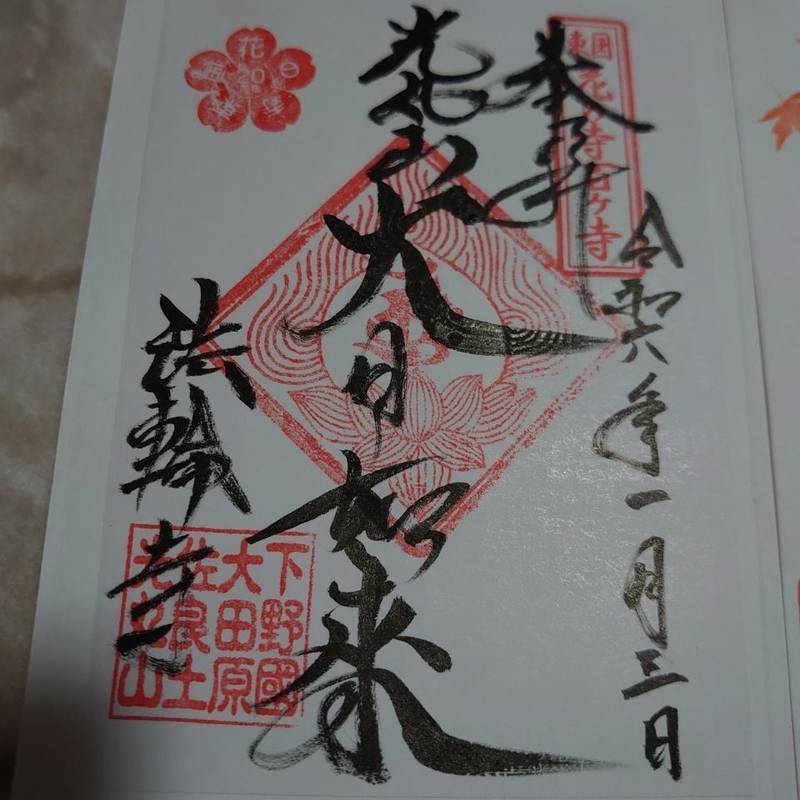 東国花の寺百ヶ寺
奉拝
令和六年一月三日
光丸山
大日如来
法輪寺
下野國
大田原
佐良土
光丸山
花
20